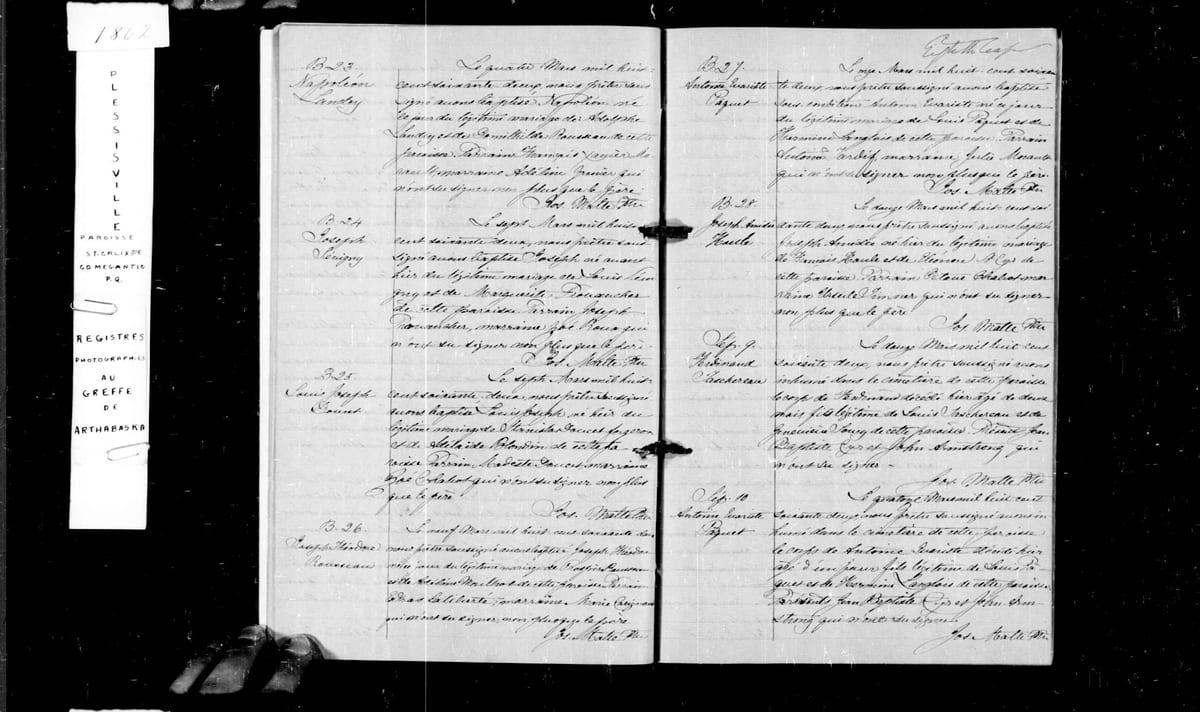 1862
PLESSISVILLE
PAROISSE
ST. CALIXTE
CO MEGANTIC
P.Q.
REGISTRES
PHOTOGRAPHIES
AU
GREFFE
DE
ARTHABASKA
B-23
Napoléon
Landry
Le quatre Mars mil huit-
cent soixante deux, nous prêtre sous
signé avons baptisé Napoléon né
le jour du légitime mariage de Adolphe
Landry et de Domithilde Rousseau de cette
paroisse Parrain François Xavier
marraine Adeline Grenier qui
n'ont su signer non plus que le père
Jos. Matte Ptre
B-24
Joseph
Sévigny
Le sept Mars mil huit-
cent soixante deux, nous prêtre sous
signé avons baptisé Joseph né avant
hier du légitime mariage de Louis Sévi
gny et de Marguerite
de cette paroisse Parrain Joseph
marraine Zoé qui
n'ont su signer non plus que le père
Jos. Matte Ptre
B-25.
Louis Joseph
Doucet
Le sept Mars mil huit-
cent soixante deux, nous prêtre soussigné
avons baptisé Louis Joseph né hier du
légitime mariage de Stanislas Doucet forgeron
et de Adelaide Blondin de cette pa
roisse Parrain Modeste Doucet marraine
Zoé Chabot qui n'ont su signer non plus
que le père
Jos. Matte Ptre
B-26.
Joseph Théodore
Rousseau
Le neuf Mars mil huit-cent soixante deux
nous prêtre soussigné avons baptisé Joseph Théodore
né ce jour du légitime mariage de Rousseau
et de Adeline de cette paroisse Parrain
Laliberté, marraine Marie
qui n'ont su signer non plus que le père
Jos. Matte Ptre
Eighth leaf
B-27.
Antoine Evariste
Paquet
Le onze Mars mil huit-cent soixan
te deux, nous prêtre soussigné avons baptisé
sous condition Antoine Evariste né ce jour
du légitime mariage de Louis Paquet et de
Hermine Langlois de cette paroisse Parrain
Antoine Tardif, marraine, Julie
qui n'ont su signer non plus que le père
Jos. Matte Ptre
B-28.
Joseph Amédée
Houle
Le douze Mars mil huit-cent soi
xante deux, nous prêtre soussigné avons baptisé
Joseph Amédée né hier du légitime mariage
de François Houle et de Eleonore St Cyr de
cette paroisse Parrain Octave Chabot mar
raine qui n'ont su signer
non plus que le père
Jos Matte Ptre
Sép. 9.
Ferdinand
Taschereau
Le douze Mars mil huit cent
soixante deux, nous prêtre soussigné avons
inhumé dans le cimetière de cette paroisse
le corps de Ferdinand décédé hier âgé de deux
mois fils légitime de Louis Taschereau et de
Geneviève de cette paroisse Présents Jean
Baptiste Cyr et John Armstrong qui
n'ont su signer-
Jos Matte Ptre
Sép. 10
Antoine Evariste
Paquet
Le quatorze Mars mil huit cent
soixante deux, nous prêtre soussigné avons in
humé dans le cimetière de cette paroisse
le corps de Antoine Evariste décédé hier
âgé d'un jour fils légitime de Louis Pa
quet et de Hermine Langlois de cette paroisse
Présents Jean Baptiste Cyr et John Arm-
strong qui n'ont su signer.
Jos Matte Ptre